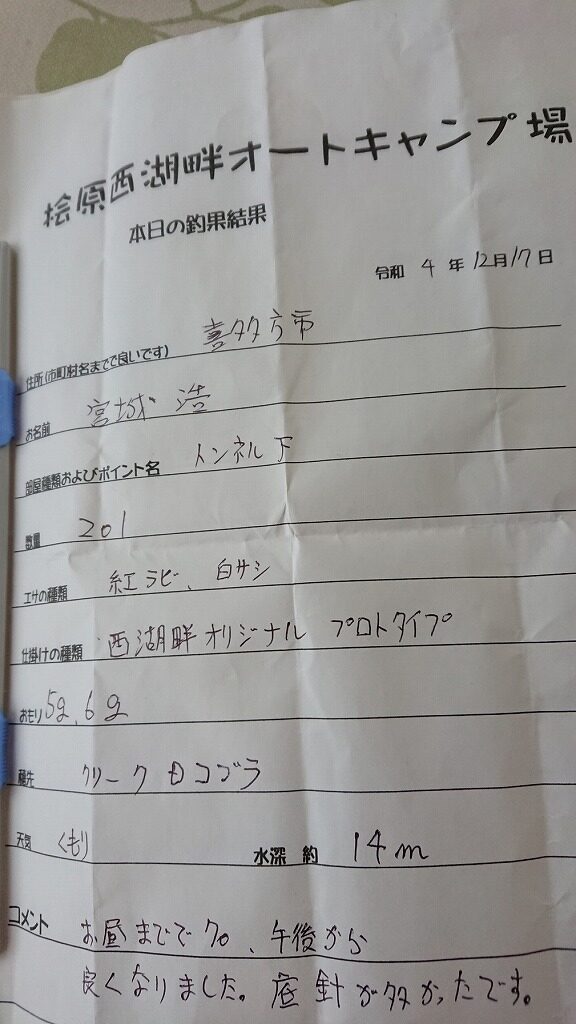 桧原西湖畔オートキャンプ場
本日の釣果結果
令和 4 年 12月17日
住所(市町村名までで良いです) 喜多方市
お名前 宮城 浩
部屋種類およびポイント名 トンネル下
数量 201
エサの種類 紅ラビ、白サシ
仕掛けの種類 西湖畔オリジナル プロトタイプ
おもり 5g、6g
穂先 クリーク コブラ
天気 くもり 水深 約 14m
コメント お昼までで70、午後から
良くなりました。底針が多かったです。